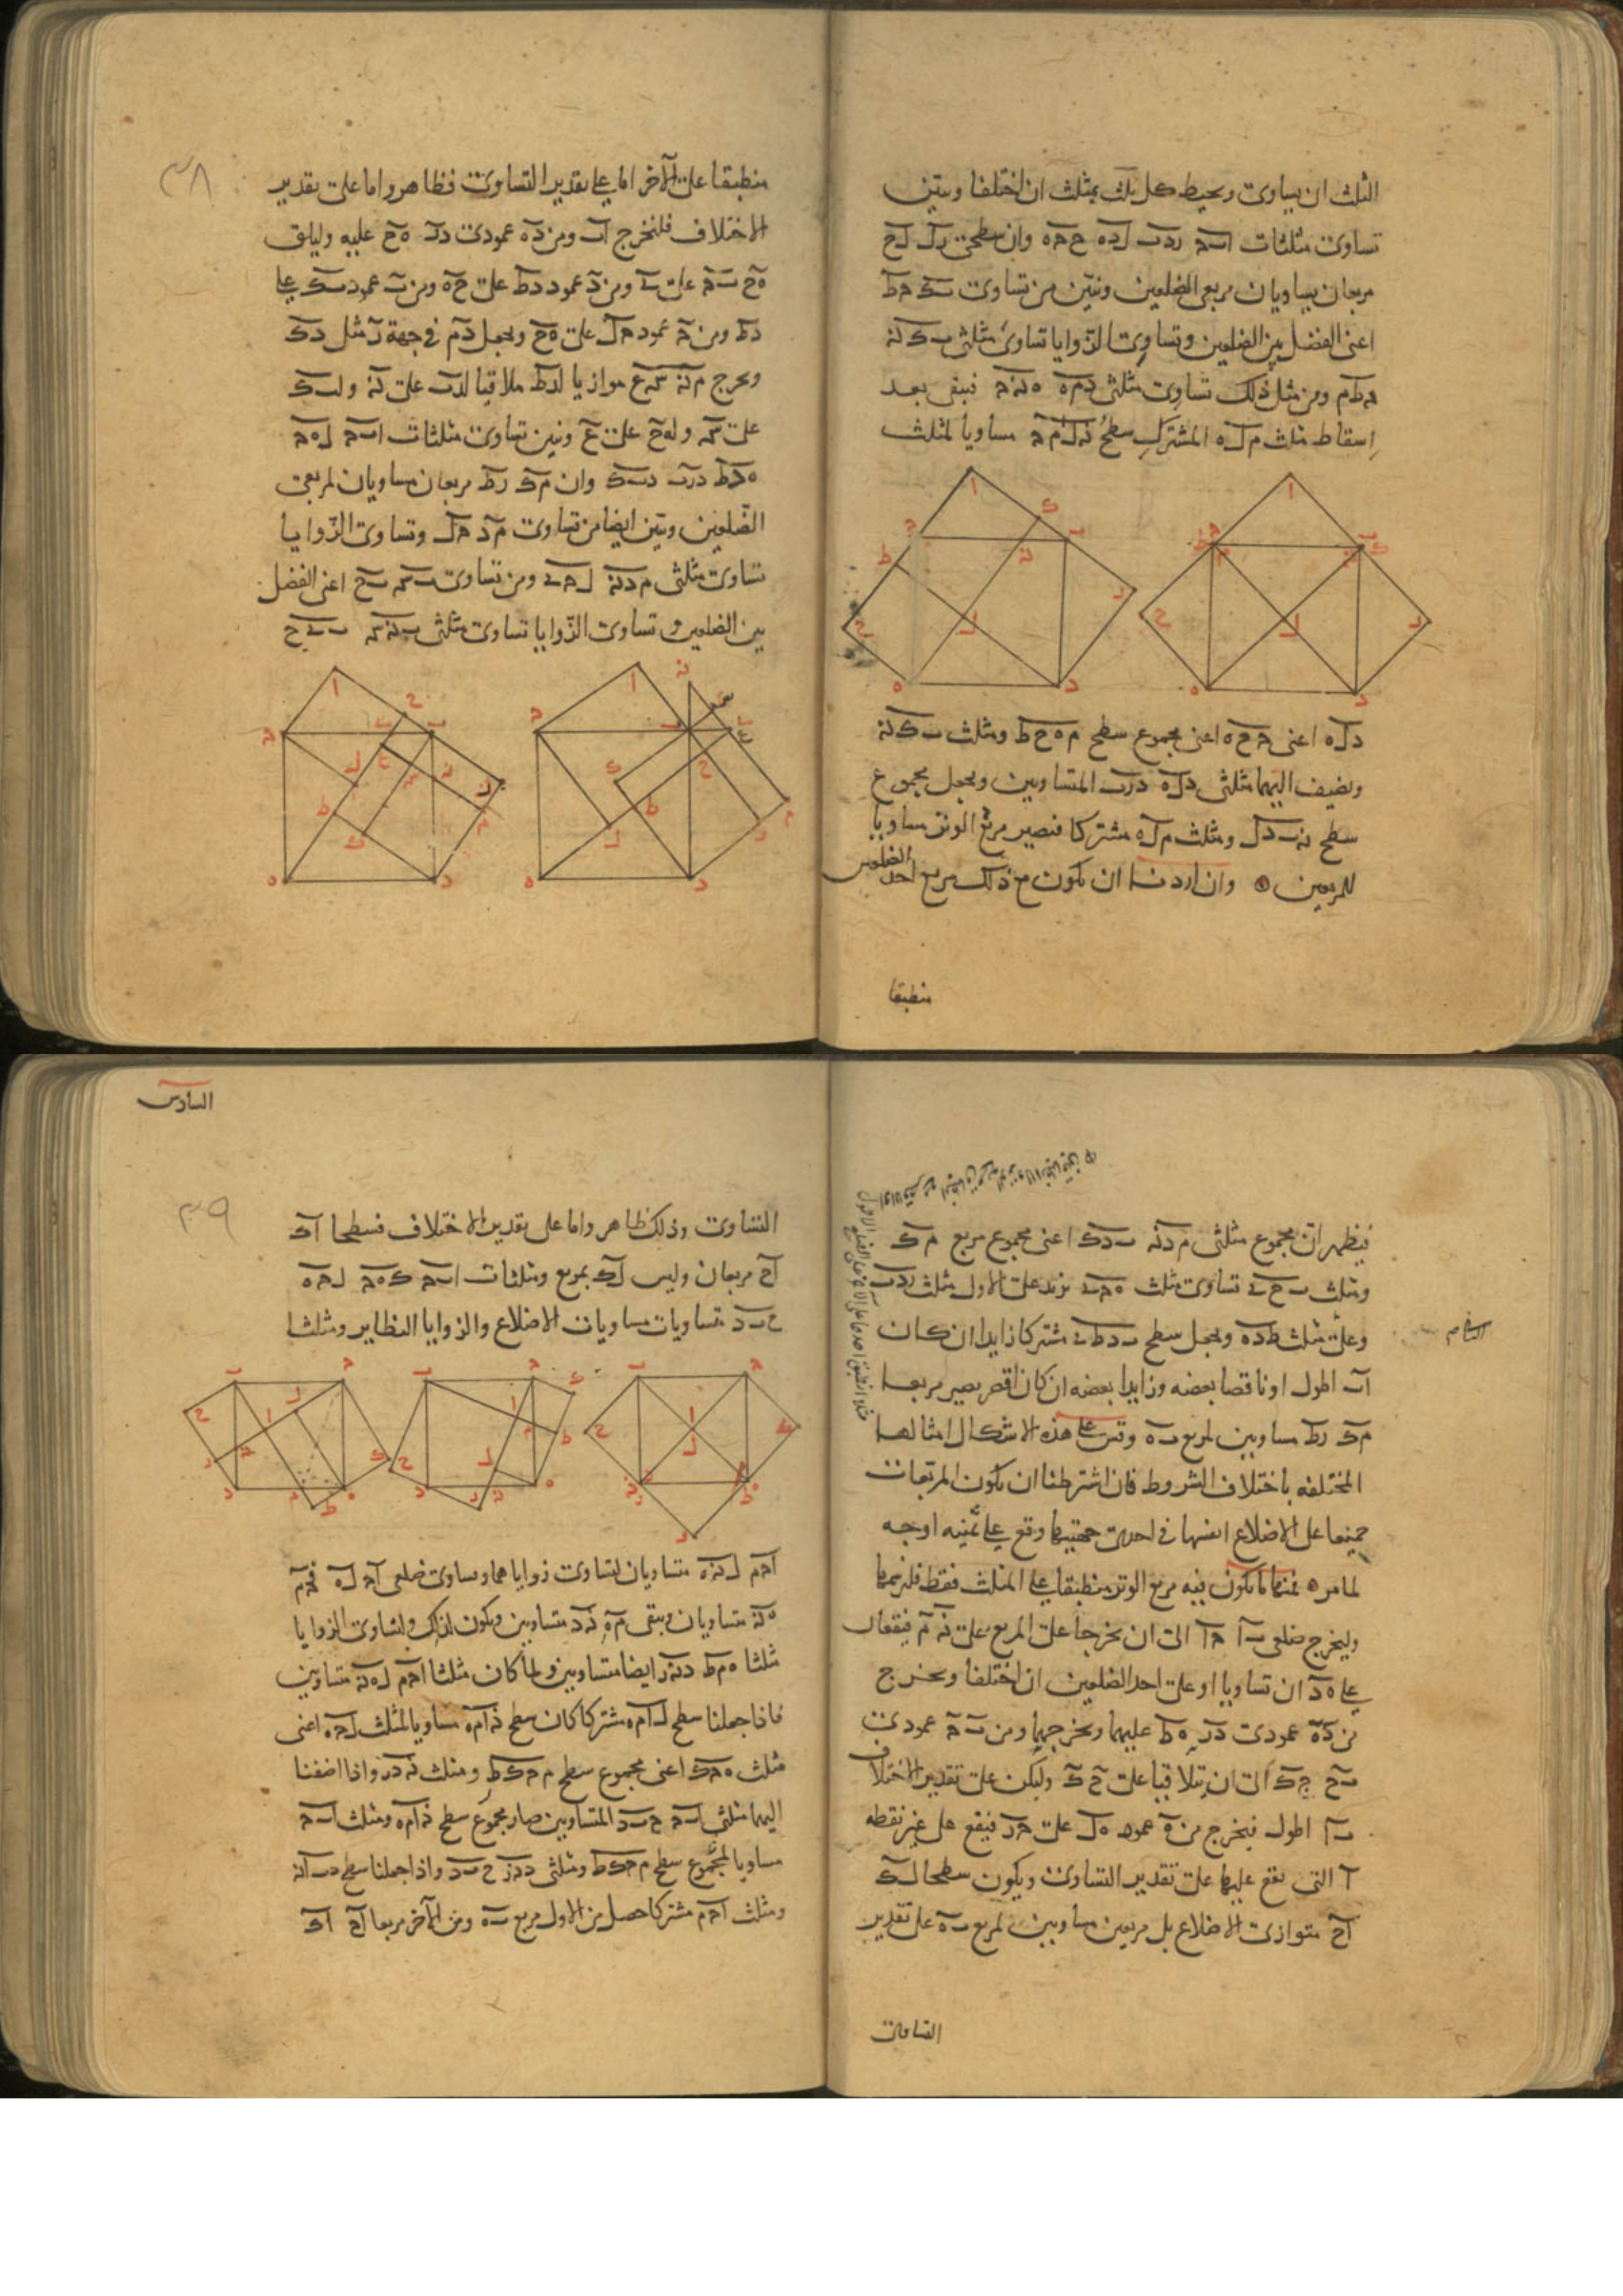 المثلث ان يساوى ويحيط كل بمثلث ان اختلفا ويبين
تساوى مثلثات ا ب ج ز د ب ل د ه ح ج ه وان سطحى ز ل ل ح
مربعان يساويان مربعى الضلعين ونبين من تساوى ب ك ج ط
اعنى الفضل بين الضلعين وتساوى الزوايا تساوى مثلثى ب ك ن
ج ط م ومن مثل ذلك تساوى مثلثى د م ه ه ن ج فيبقى بعد
اسقاط مثلث م ل ه المشترك سطح ن ل م ج مساويا لمثلث
د ل ه اعنى ج ح ه اعنى مجموع سطح م ه ح ط ومثلث ب ك ن
ونضيف اليهما مثلثى د ل ه د ز ب المتساويين ونجعل مجموع
سطح ن ب د ل ومثلث م ل ه مشتركا فيصير مربع الوتر مساويا
للمربعين وان اردنا ان يكون مع ذلك مربع احد الضلعين
منطبقا
٣٨
منطبقا على الآخر اما على تقدير التساوى فظاهر واما على تقدير
الاختلاف فلنخرج ا ب ومن د ه عمودى د ز ه ح عليه وليلق
ه ح ب ج على ى ومن د عمود د ط على ح ه ومن ب عمود ب ك على
د ط ومن ج عمود ج ل على ه ح ونجعل د م فى جهة ز مثل د ك
ونخرج م ن س ع موازيا ل د ط ملاقيا ل د ب على ن ول ب ك
على س ول ه ح على ع ونبين تساوى مثلثات ا ب ج ل ه ج
ه د ط د ز ب د ب ك وان م ك ز ط مربعان مساويان لمربعى
الضلعين ونبين ايضا من تساوى م د ج ل وتساوى الزوايا
تساوى مثلثى م د ن ل ج ى ومن تساوى ب س ب ح اعنى الفضل
بين الضلعين وتساوى الزوايا تساوى مثلثى ب ن س ب ى ح
فيظهر ان مجموع مثلثى م د ن ب د ك اعنى مجموع مربع م ك
ومثلث ب ح ى تساوى مثلث ه ج ى يزيد على الاول مثلث ز د ب
وعلى مثلث ط د ه ونجعل سطح ب د ط ى مشتركا زايدا ان كان
ا ب اطول او ناقصا بعضه وزايدا بعضه ان كان اقصر يصير مربعا
م ك ز ط مساويين لمربع ب ه وقس على هذه الاشكال امثالها
المختلفه باختلاف الشروط فان اشترطنا ان يكون المربعات
جميعا على الاضلاع انفسها فى احدى جهتيها وقع على ثمنيه اوجه
لما مر فمنها ما يكون فيه مربع الوتر منطبقا على المثلث فقط فلنرسمها
وليخرج ضلعى ب ا ج ا الى ان يخرجا على المربع على ن م فيقعان
على ه د ان تساويا او على احد الضلعين ان اختلفا ونخرج
من د ه عمودى د ز ه ط عليهما ونخرجهما ومن ب ج عمودى
ب ح ج ك الى ان يتلاقيا على ح ك وليكن على تقدير الاختلاف
ب ا اطول فيخرج من ه عمود ه ل على ج ز فيقع على غير نقطه
ا التى يقع عليها على تقدير التساوى ويكون سطحا ل ك
ا ح متوازى الاضلاع بل مربعين مساويين لمربع ب ه على تقدير
التساوى
السادس
٣٩
التساوى وذلك ظاهر واما على تقدير الاختلاف فسطحا ا ك
ا ح مربعان وليس ل ك بمربع ومثلثات ا ب ج ك ه ج ل ج ه
ح ب د متساويات متساويات الاضلاع والزوايا النظاير ومثلثا
ا ج م ل ن ه متساويان لتساوى زواياهما وتساوى ضلعى ا ج ل ه ف ج م
ه ن متساويان ويبقى م ه ن د متساويين ويكون لذلك ولتساوى الزوايا
مثلثا ه م ط د ن ز ايضا متساويين ولما كان مثلثا ا ج م ل ه ن متساويين
فاذا جعلنا سطح ل ا م ه مشتركا كان سطح ن ا م ه مساويا لمثلث ل ج ه اعنى
مثلث ه ج ك اعنى مجموع سطح م ج ك ط ومثلث ن د ز واذا اضفنا
اليهما مثلثى ا ب ج ح ب د المتساويين صار مجموع سطح ن ا م ه ومثلث ا ب ج
مساويا لمجموع سطح م ج ك ط ومثلثى د ن ز ح ب د واذا جعلنا سطح د ب ا ن
ومثلث ا ج م مشتركا حصل من الاول مربع ب ه ومن الآخر مربعا ا ح ا ك